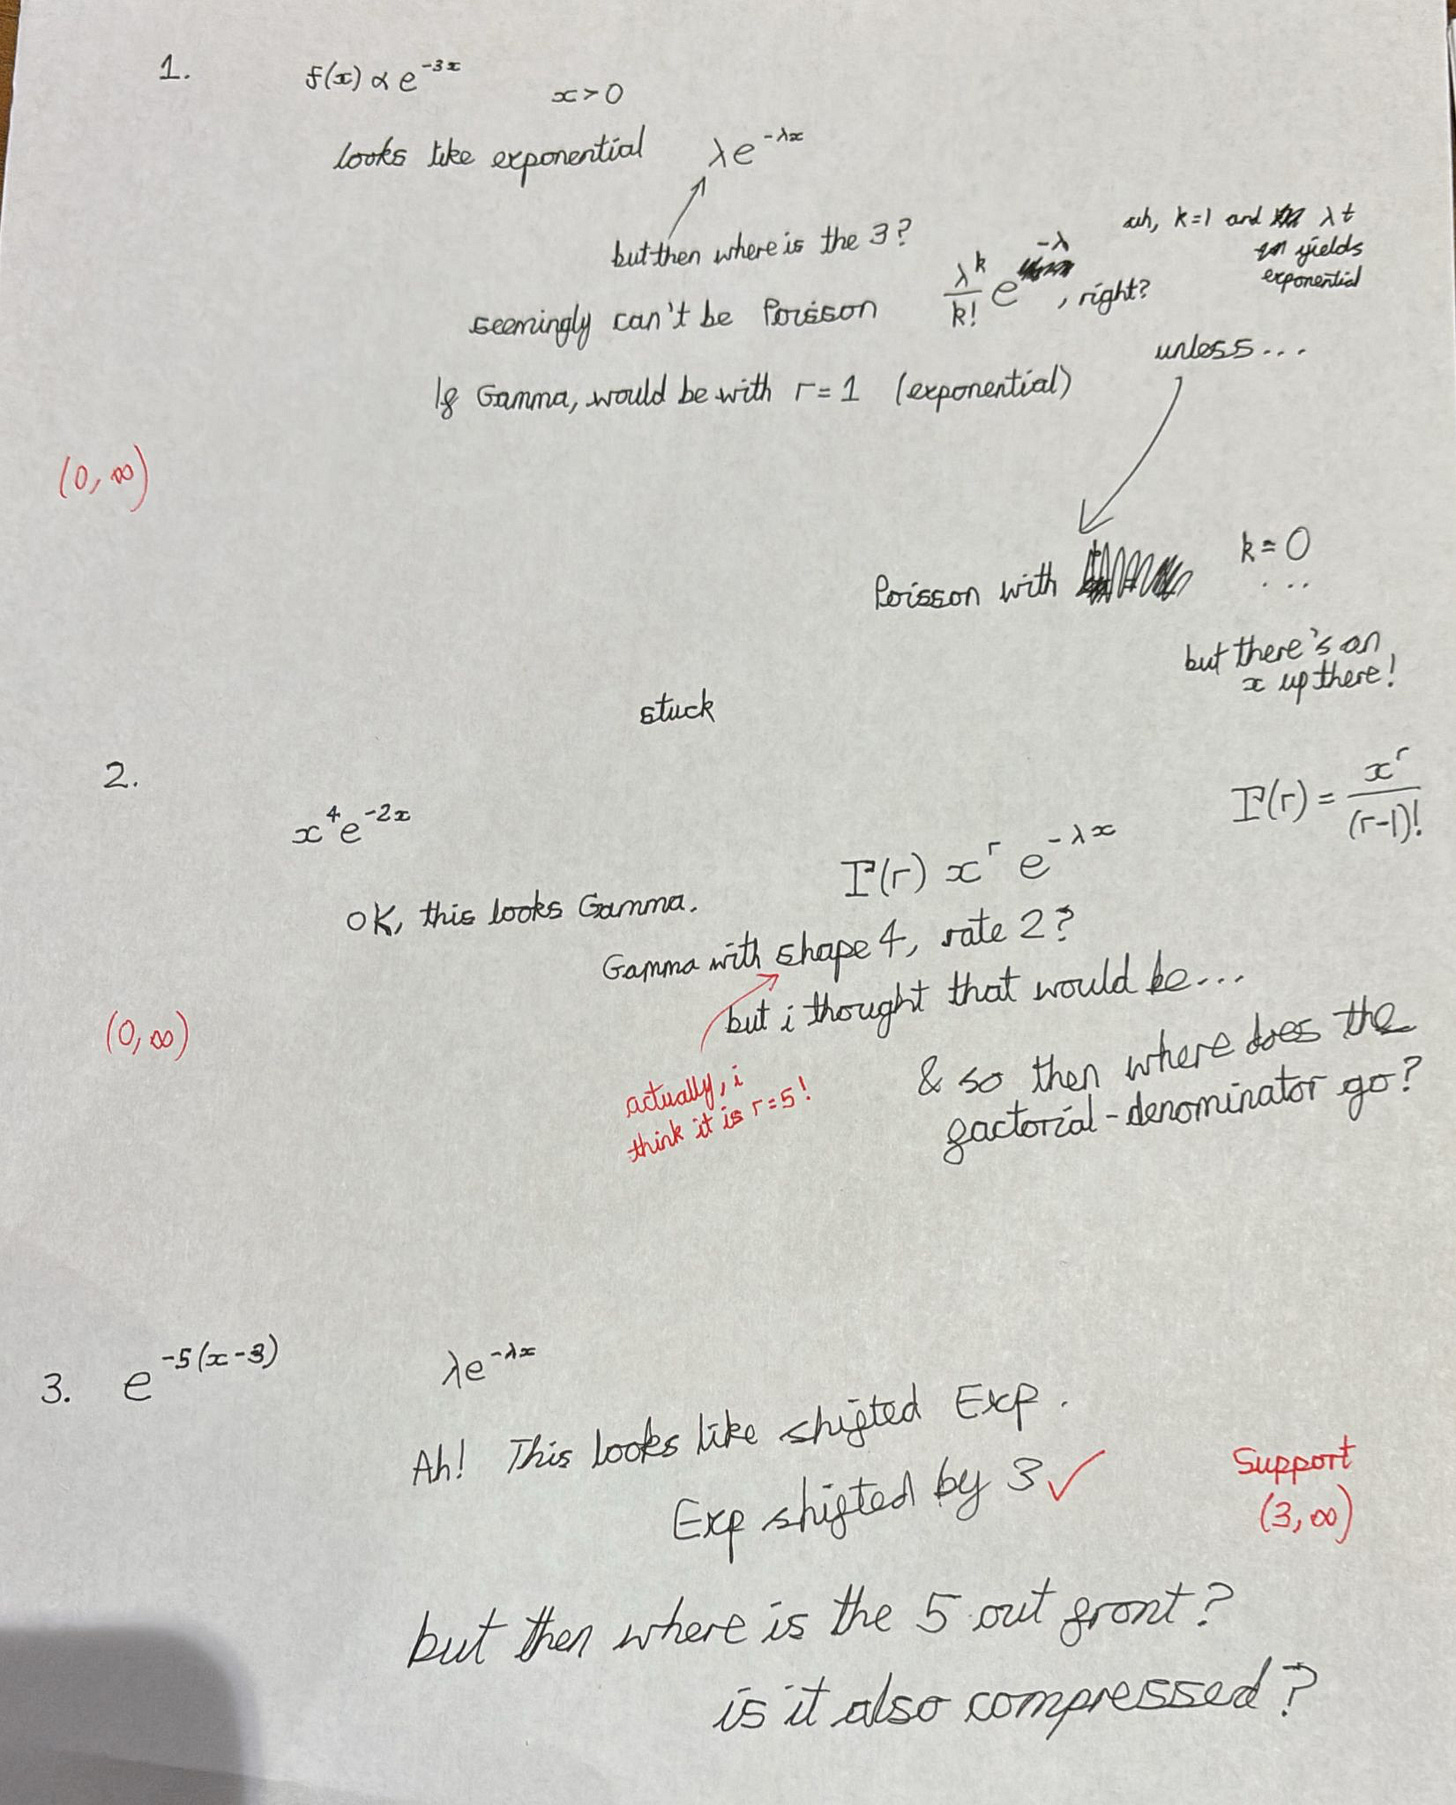 1. f(x) ∝ e^{-3x} x > 0
looks like exponential λe^{-λx}
but then where is the 3?
uh, k=1 and λt
yields
exponential
seemingly can't be Poisson λ^k/k! e^{-λ}, right?
unless...
If Gamma, would be with r = 1 (exponential)
(0, ∞)
Poisson with k = 0
...
but there's an
x up there!
stuck
2. x^4 e^{-2x}
Γ(r) = x^r/(r-1)!
OK, this looks Gamma. Γ(r) x^r e^{-λx}
Gamma with shape 4, rate 2?
but i thought that would be...
(0, ∞)
actually, i
think it is r=5!
& so then where does the
factorial-denominator go?
3. e^{-5(x-3)} λe^{-λx}
Ah! This looks like shifted Exp.
Exp shifted by 3 ✓
Support
(3, ∞)
but then where is the 5 out front?
is it also compressed?